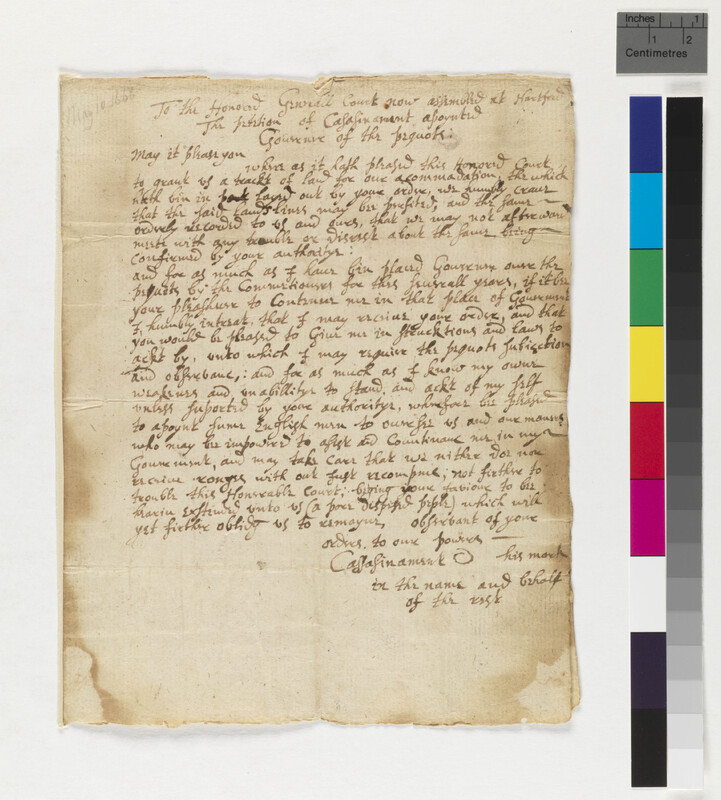 Inches 1
1 2
Centimetres
May 10 1666
To the Honored Generall Court now assembled at Hartford
The petition of Casasinament apoynted
Gouernor of the pequots:
May it please you
where as it hath pleased this Honored Court
to grant vs a trackt of land for our acommadation; the which
hath bin in layed out by your order, we humbly craue
that the said land lines may be and the same
orderly recorded to vs and ours, that we may not afterward
meete with any trouble or about the same being
confirmed by your authoritye:
and for as much as I haue bin placed Gouernor ouer the
pequets by the Committiouers for this seuerall years, if it be
your pleashuer to Continue me in that place of Gouerment
I humbly intreat, that I may receiue your order, and that
you would be pleased to Giue me in strucktions and laws to
ackt by, vnto which I may requier the pequots subiection
and obseruanc,: and for as much as I know my owne
weaknes and vnabillitye to stand, and ackt of my self
vnless suported by your authoritye, wherefor be pleased
to apoynt sume English men to ouerse vs and our maners
who may bee impowred to asist and Countinanc me in my
Gouerment, and may take care that we nither doe nor
receiue ronges with out just recompenc; not further to
trouble this Honorable Court; beging your fauiour to be
exstended vnto vs (a poor despised peple) which will
yet firther oblidg vs to remayne, obseruant of your
orders to our powers
Cassasinament O his mark
in the name and behalf
of the rest